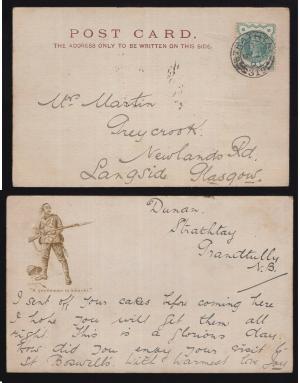 POST CARD.
THE ADDRESS ONLY TO BE WRITTEN ON THIS SIDE.
Mr. Martin
Greycrook.
Newlands Rd.
Langside Glasgow.
Dunan.
Strathtay
Grandtully
N.B.
"A gentleman in kharki."
I sent off your cakes before coming here
I hope you will get them all
right. This is a glorious day.
How did you enjoy your visit to
St Boswells. With warmest love